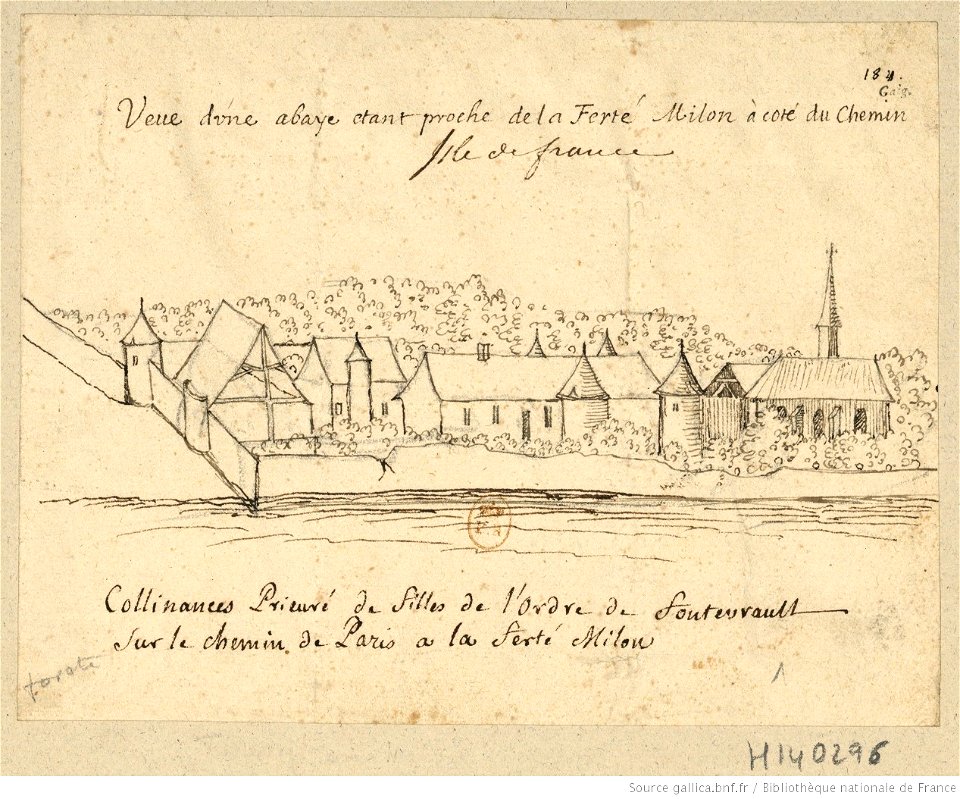 184.
Gaig.
Veue d'vne abaye etant proche de la Ferté Milon à coté du Chemin
Isle de france
Collinances Prieuré de filles de l'Ordre de fontevrault
Sur le chemin de Paris a la ferté Milon
1
H140296
Source gallica.bnf.fr / Bibliothèque nationale de France